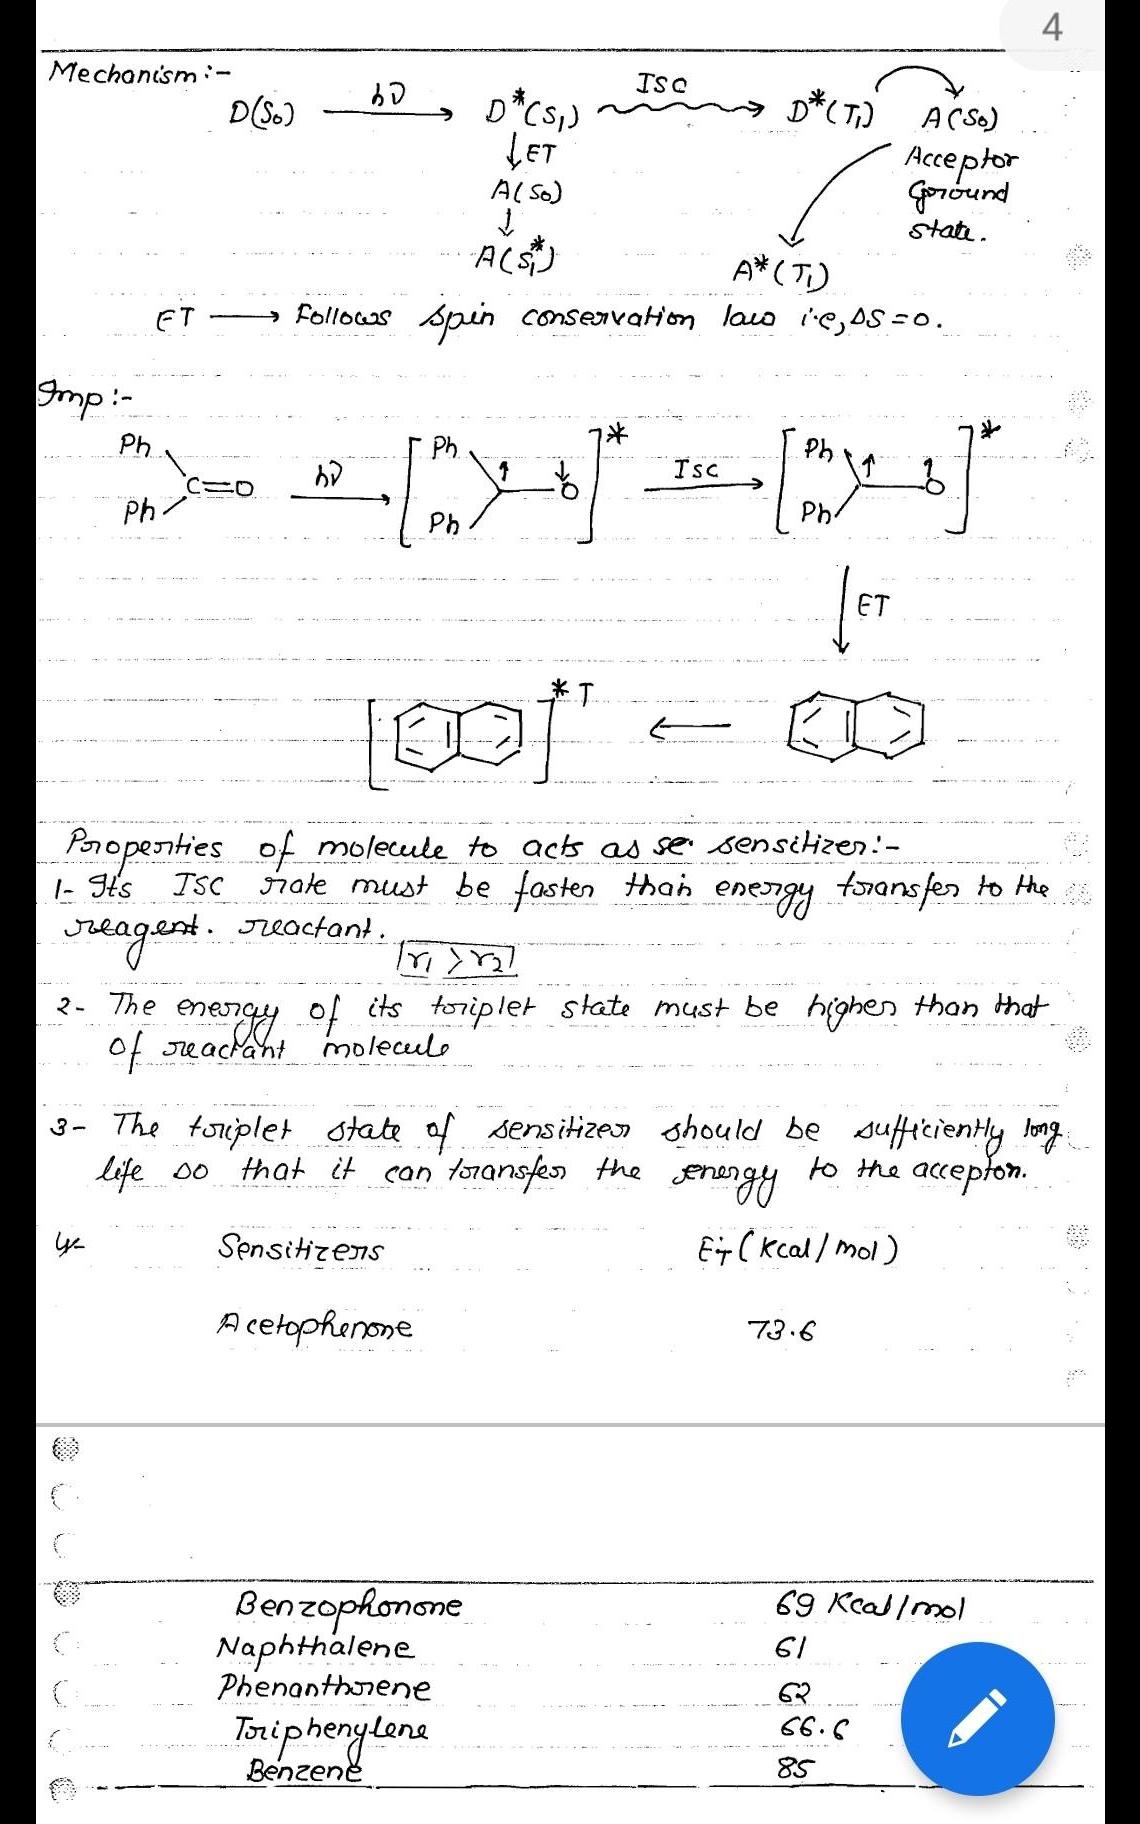 4
Mechanism:-
D(S₀) hν → D*(S₁) ISC → D*(T₁) A(S₀)
↓ET Acceptor
A(S₀) Ground
↓ state.
A(S₁*) A*(T₁)
ET → Follows spin conservation law i.e, ΔS = 0.
Imp:-
Ph Ph C=O hν → [Ph Ph ↑ ↓ O]* ISC → [Ph Ph ↑ ↑ O]*
↓ ET
[ ]* T ←
Properties of molecule to acts as se. sensitizer:-
1- Its ISC rate must be faster than energy transfer to the
reagent. reactant.
r₁ > r₂
2- The energy of its triplet state must be higher than that
of reactant molecule
3- The triplet state of sensitizer should be sufficiently long
life so that it can transfer the energy to the acceptor.
4- Sensitizers E_T (Kcal/mol)
Acetophenone 73.6
Benzophonone 69 Kcal/mol
Naphthalene 61
Phenanthrene 62
Triphenylene 66.6
Benzene 85